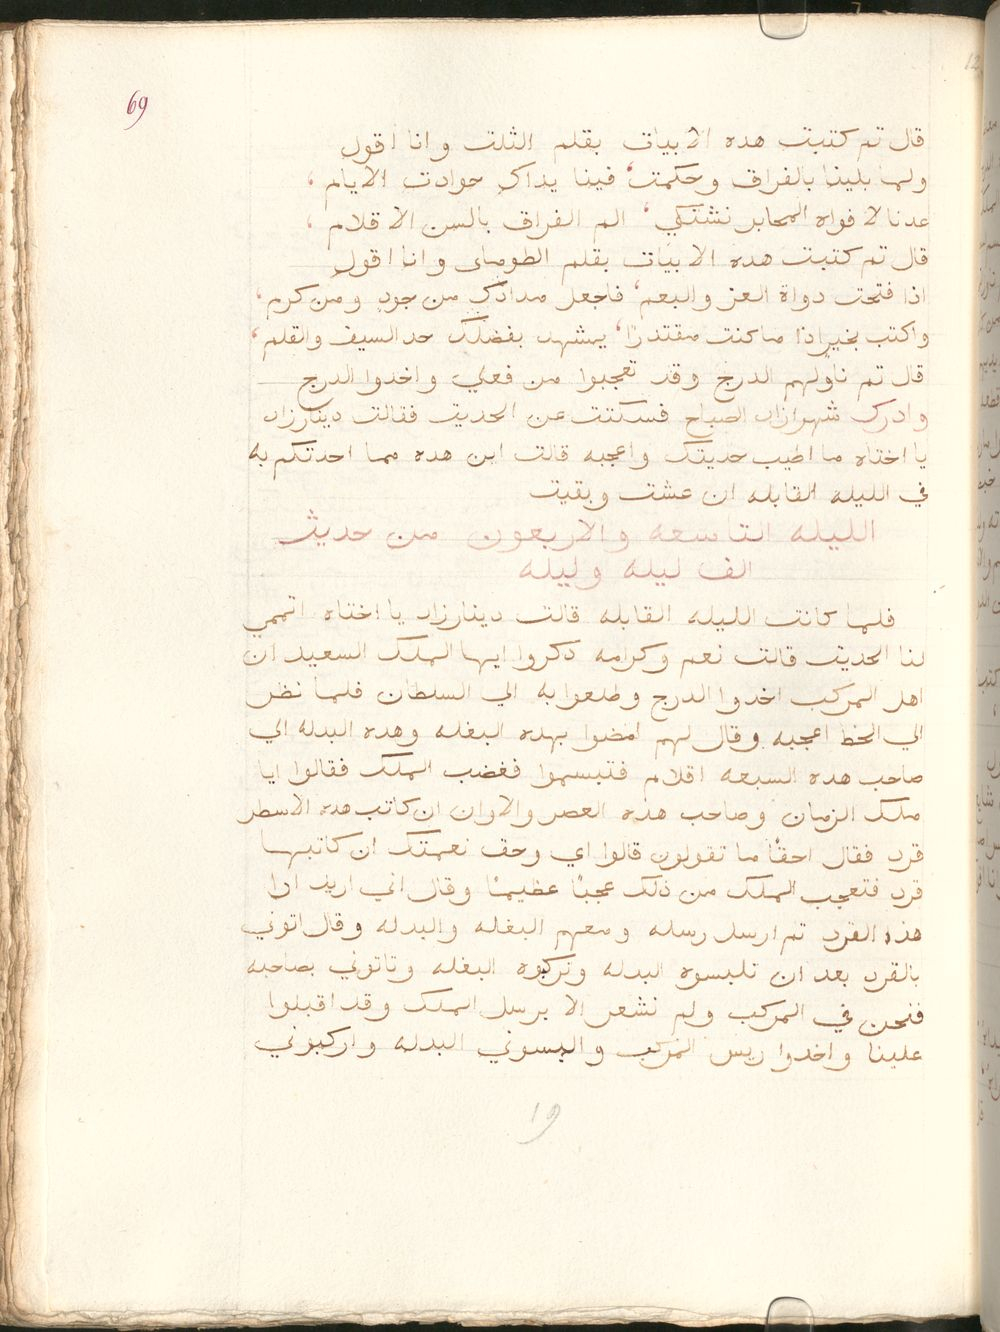 69
قال تم كتبت هده الابيات بقلم الثلت وانا اقول
ولما بلينا بالفراق وحكمت فينا يداك حوادت الايام
عدنا لافواه المحابر نشتكي الم الفراق بالسن الاقلام
قال تم كتبت هده الابيات بقلم وانا اقول
اذا فتحت دواة العز والنعم فاجعل مدادك من جود ومن كرم
واكتب بخير اذا ما كنت مقتدرًا يشهد بفضلك حد السيف والقلم
قال تم ناولهم الدرج وقد تعجبوا من فعلي واخدوا الدرج
وادرك شهرازاد الصباح فسكتت عن الحديت فقالت دينارزاد
يا اختاه ما اطيب حديتك واعجبه قالت اين هده مما احدتكم به
في الليله القابله ان عشت وبقيت
الليله التاسعه والاربعون من حديث
الف ليله وليله
فلما كانت الليله القابله قالت دينارزاد يا اختاه اتممي
لنا الحديت قالت نعم وكرامه دكروا ايها الملك السعيد ان
اهل المركب اخدوا الدرج وطلعوا به الي السلطان فلما نظر
الي الخط اعجبه وقال لهم امضوا بهده البغله وهده البدله الي
صاحب هده السبعه اقلام فتبسموا فغضب الملك فقالوا ايا
ملك الزمان وصاحب هده العصر والاوان ان كاتب هده الاسطر
قرد فقال احقًا ما تقولون قالوا اي وحق نعمتك ان كاتبها
قرد فتعجب الملك من ذلك عجبًا عظيمًا وقال اني اريد ارا
هذا القرد تم ارسل رسله ومعهم البغله والبدله وقال اتوني
بالقرد بعد ان تلبسوه البدله وتركبوه البغله وتاتوني بصاحبه
فنحن في المركب ولم نشعر الا برسل الملك وقد اقبلوا
علينا واخدوا ريس المركب والبسوني البدله واركبوني
19